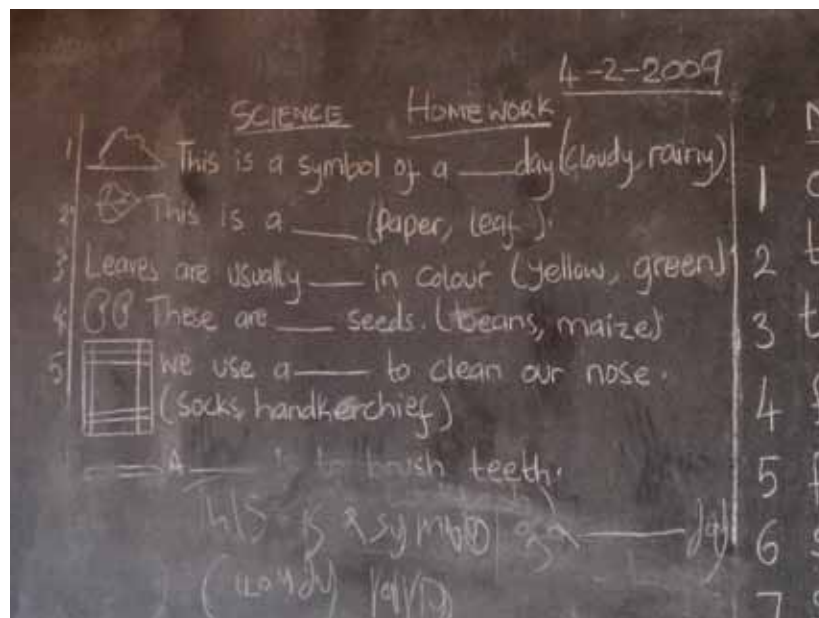 4-2-2009
SCIENCE HOMEWORK
1 This is a symbol of a ___ day (cloudy, rainy)
2 This is a ___ (paper, leaf).
3 Leaves are usually ___ in colour (yellow, green)
4 These are ___ seeds. (beans, maize)
5 we use a ___ to clean our nose.
(socks, handkerchief)
A ___ is to brush teeth.
This is a symbol of a ___ day
1
2
3
4
5
6
7